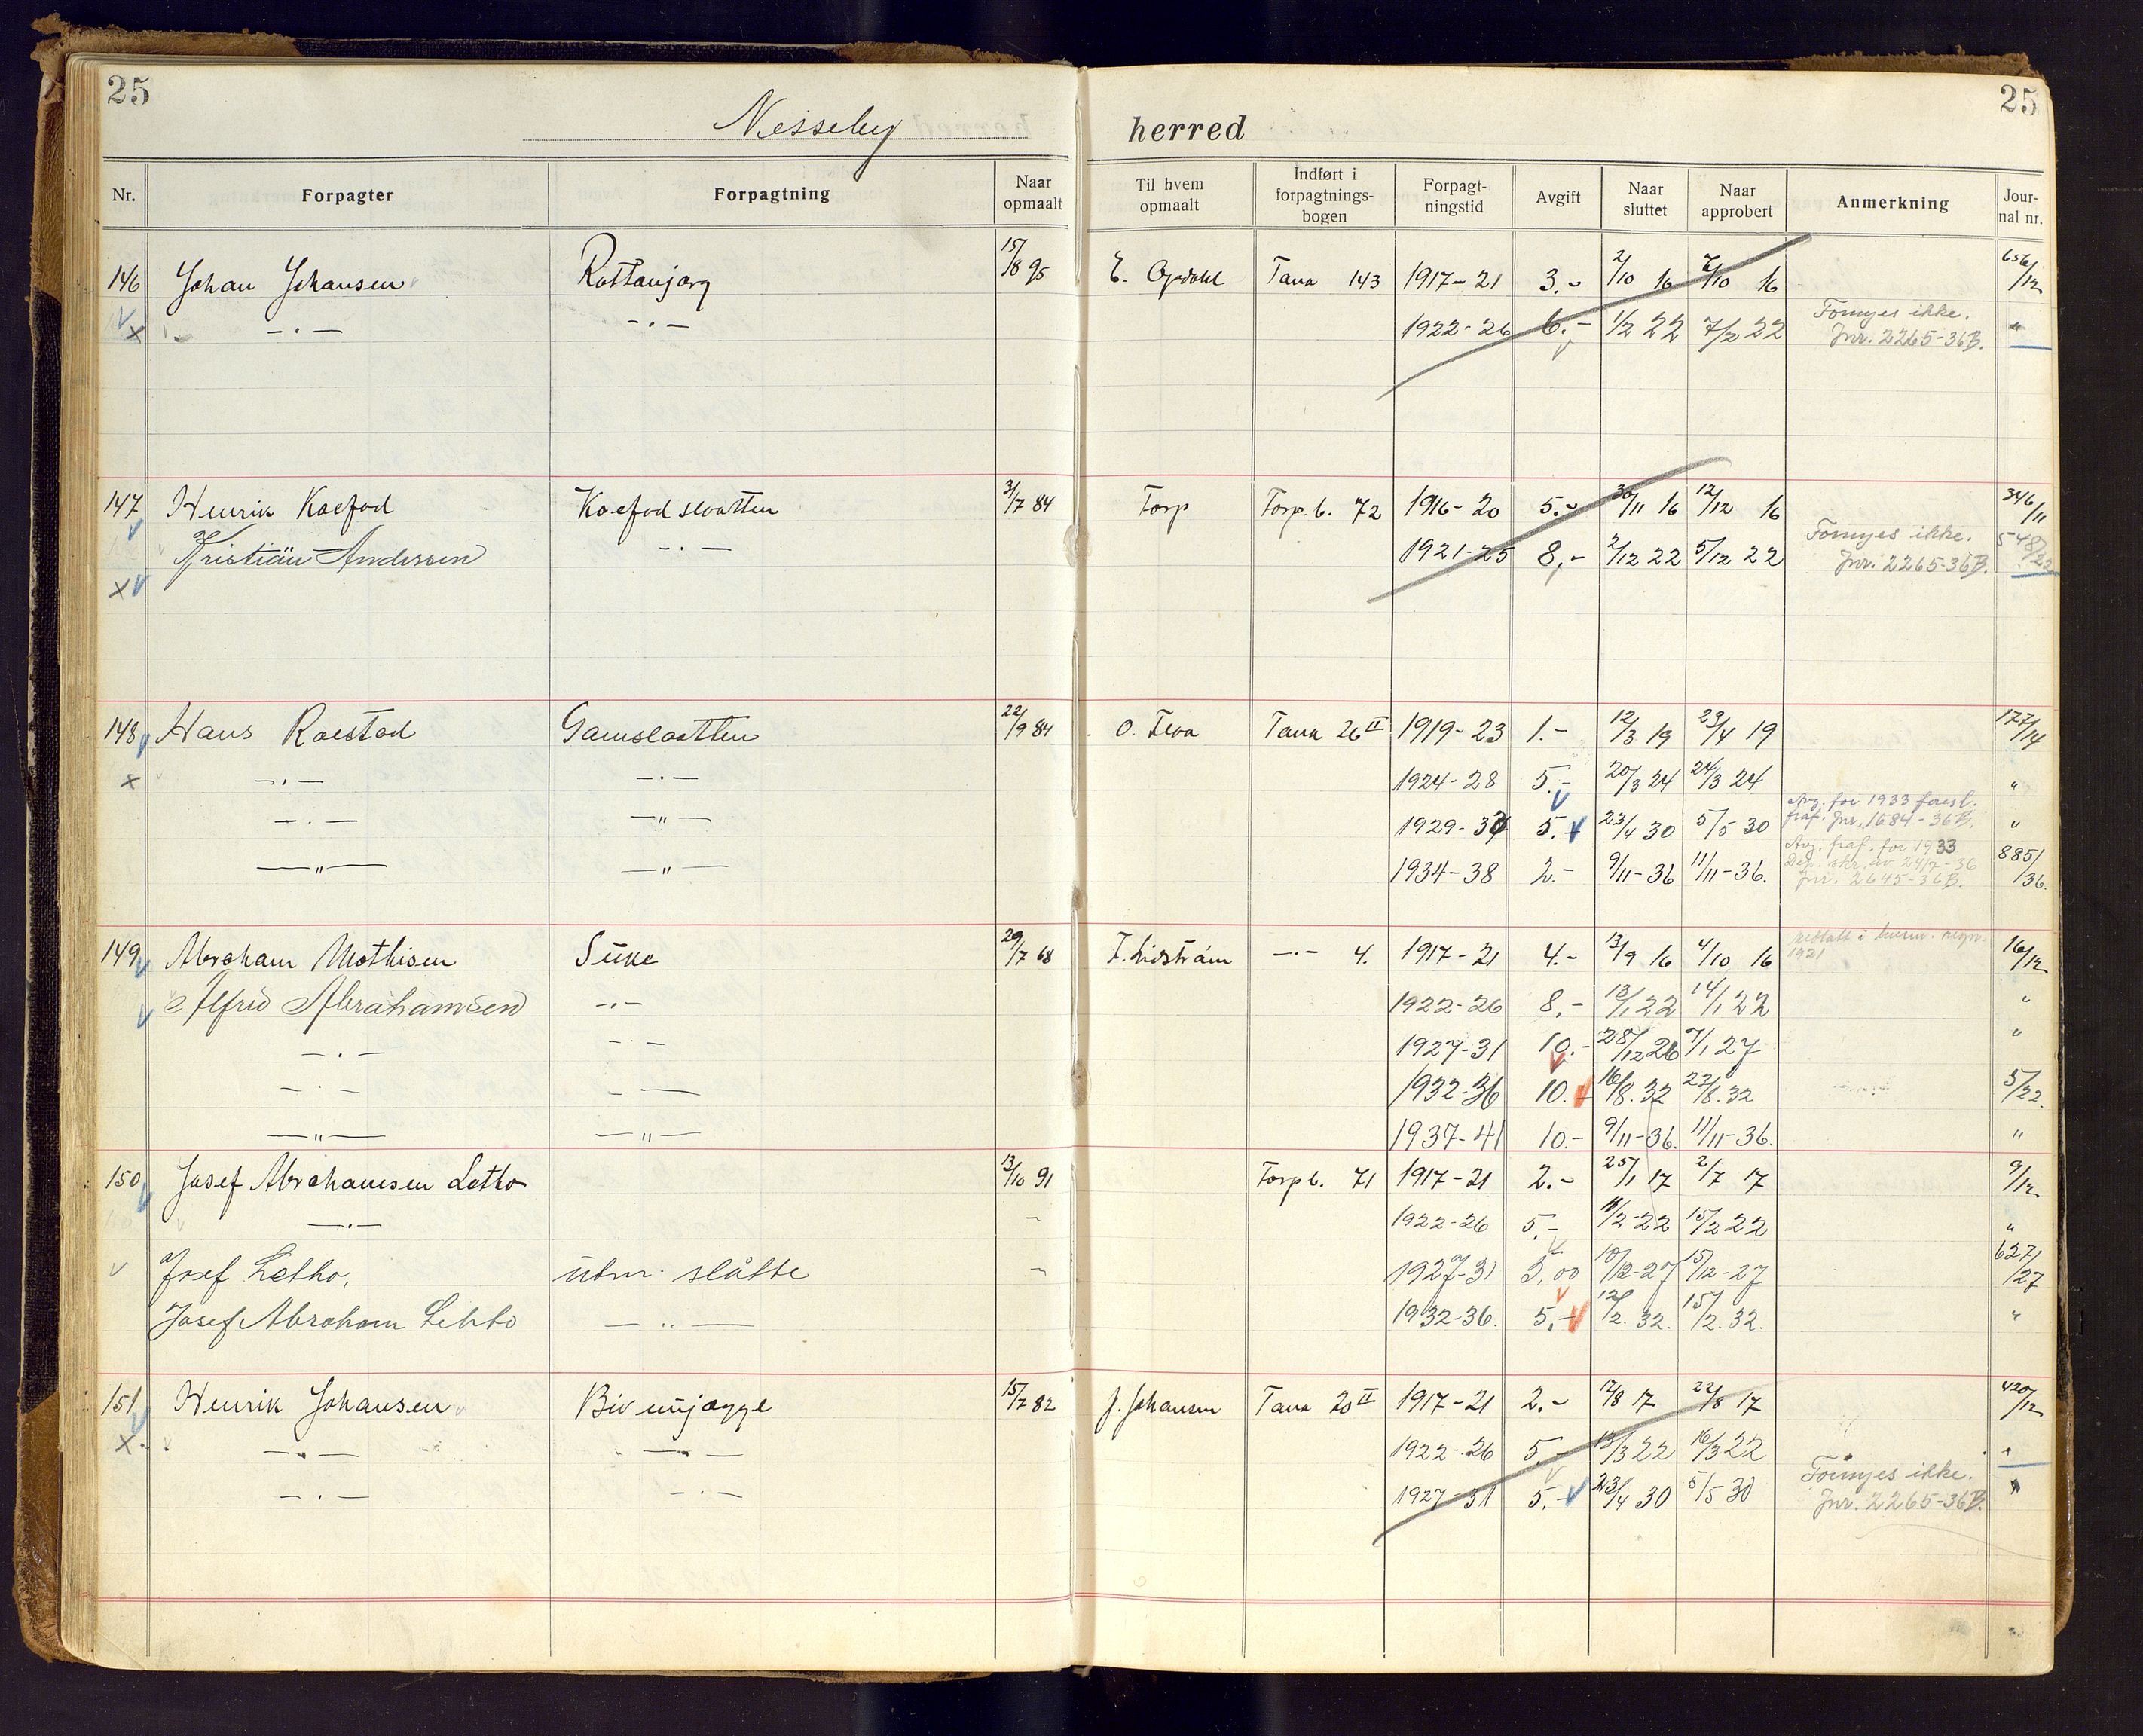 25
25
Nesseby herred
Nr. Forpagter Forpagtning Naar opmaalt Til hvem opmaalt Indført i forpagtnings-bogen Forpagt-ningstid Avgift Naar sluttet Naar approbert Anmerkning Jour-nal nr.
146 Johan Johansen Rottanjarg 15/8 95 E. Opdahl Tana 143 1917-21 3.- 2/10 16 7/10 16 656/12
-"- -"- 1922-26 6.- 1/2 22 7/2 22 Fornyes ikke. Jnr. 2265-36B. "
147 Henrik Koefod Koefodslaatten 31/7 84 Torp Torp. b. 72 1916-20 5.- 30/11 16 12/12 16 346/11
Kristian Andersen -"- 1921-25 8,- 2/12 22 5/12 22 Fornyes ikke. Jnr. 2265-36B. 548/22
148 Hans Roestad Gamslaatten 22/9 84 O. Tana 26 II 1919-23 1.- 12/3 19 23/4 19 177/14
-"- -"- 1924-28 5.- 20/3 24 24/3 24 "
-"- -"- 1929-33 5.- 23/4 30 5/5 30 Avg. for 1933 Jnr. 1684-36B. "
-"- -"- 1934-38 2.- 9/11-36 11/11-36. Avg. fraf. for 1933 Dep. skr. av 24/7-36 Jnr. 2645-36B. 885/36.
149 Abraham Mathisen Suke 29/7 68 F. Lidström -"- 4. 1917-21 4.- 13/9 16 4/10 16 1921 16/12
Alfred Abrahamsen -"- 1922-26 8,- 13/1 22 14/1 22 "
-"- -"- 1927-31 10.- 28/12 26 7/1 27 "
-"- -"- 1932-36 10.- 16/8. 32 22/8. 32 5/22.
-"- -"- 1937-41 10.- 9/11-36. 11/11-36. "
150 Josef Abrahamsen Letho 13/10 91 Torp b. 71 1917-21 2.- 25/1 17 2/7 17 9/12
-"- - 1922-26 5,- 11/2-22 15/2 22 "
Josef Letho, utm. slåtte - 1927-31 5,00 10/12-27 15/12-27 627/27
Josef Abraham Lehto -"- 1932-36. 5,- 12/2. 32. 15/2. 32. "
151 Henrik Johansen Bivunjægge 15/7 82 J. Johansen Tana 20 II 1917-21 2.- 17/8 17 22/8 17 420/12
-"- -"- 1922-26 5.- 13/3 22 16/3 22 "
-"- -"- 1927-31 5.- 23/4 30 5/5 30 Fornyes ikke. Jnr. 2265-36B. "